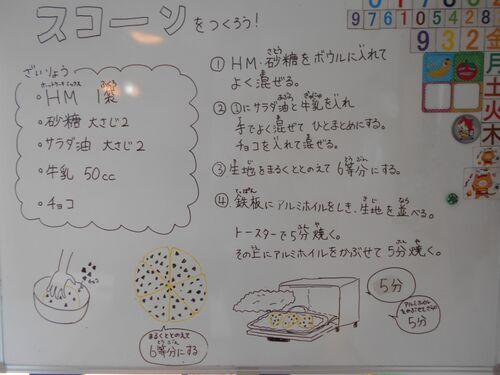 スコーンをつくろう!
ざいりょう
ホットケーキミックス
・HM 1袋
・砂糖 大さじ2
・サラダ油 大さじ2
・牛乳 50cc
・チョコ
①HM・砂糖をボウルに入れて
よく混ぜる。
②①にサラダ油と牛乳を入れ
手でよく混ぜて ひとまとめにする。
チョコを入れて混ぜる。
③生地をまるくととのえて 6等分にする。
④鉄板にアルミホイルをしき、生地を並べる。
トースターで5分焼く。
その上にアルミホイルをかぶせて5分焼く。
まるくととのえて
6等分にする
5分
アルミホイル
5分
9 7 6 1 0 5 4 2 8
9 3 2 金
月
土
火
木